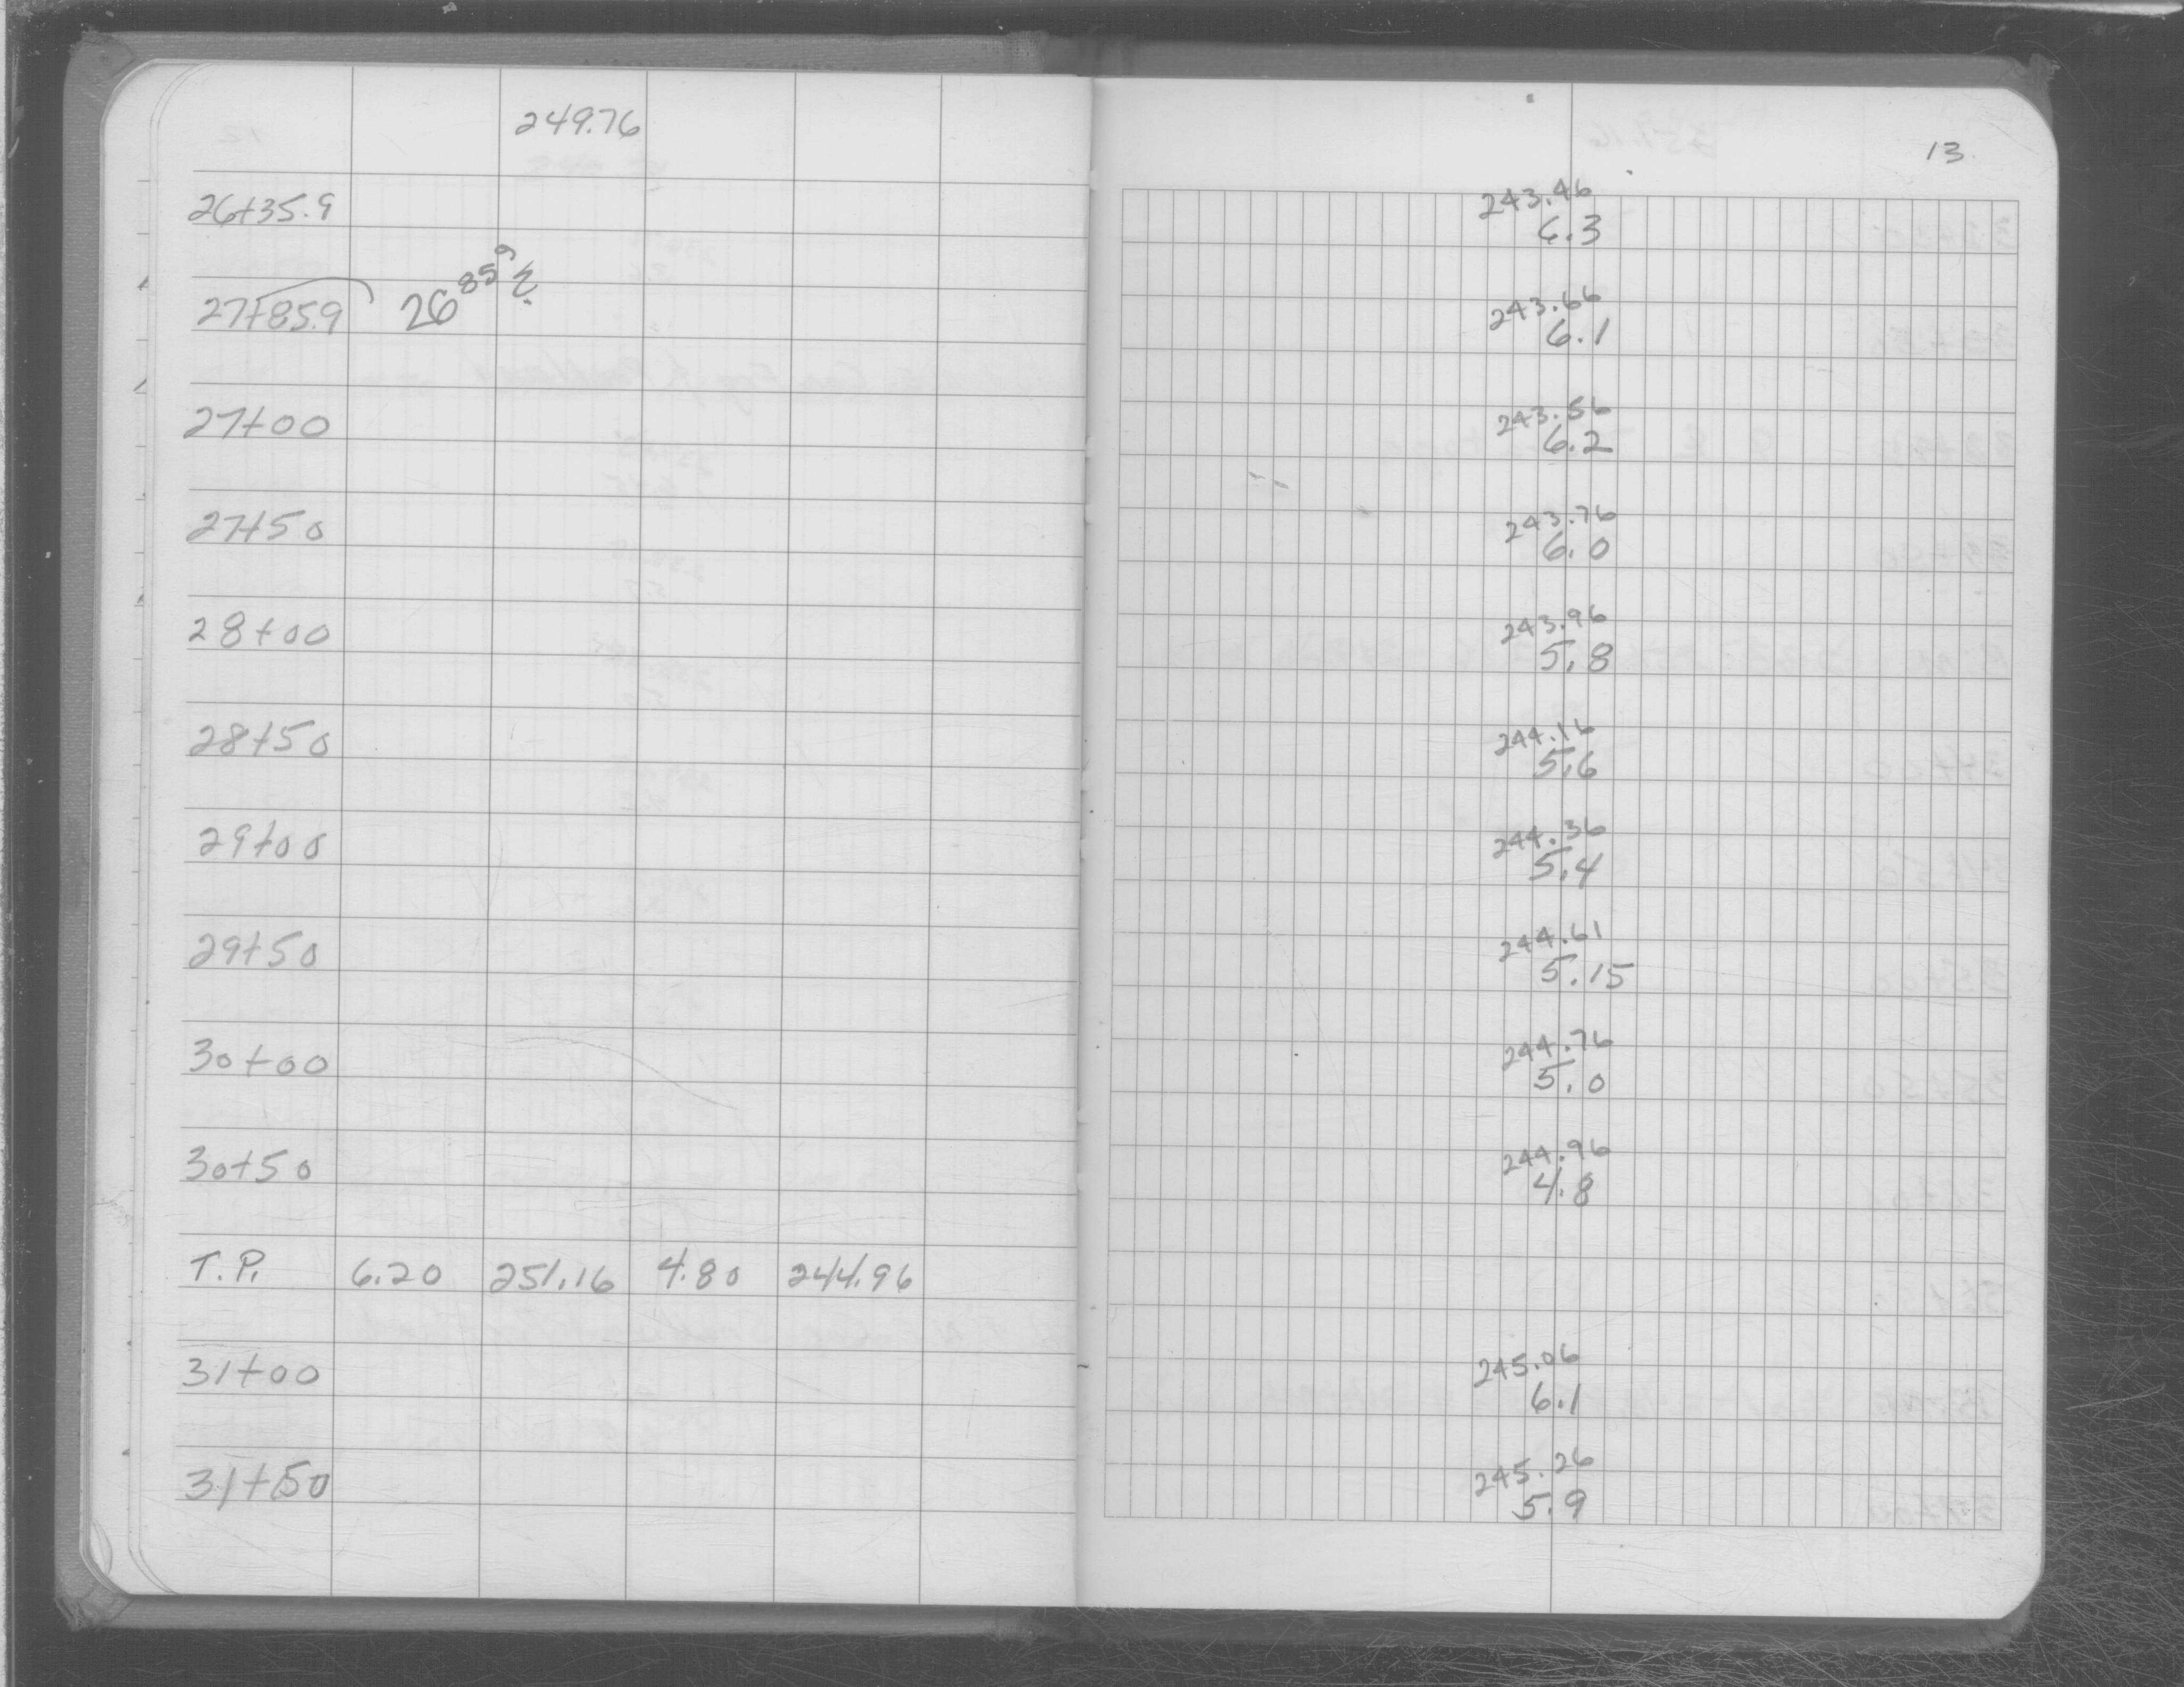 249.76
13
26+35.9 243.46
6.3
27+85.9 26 85 9 ? 243.66
6.1
27+00 243.56
6.2
27+50 243.76
6.0
28+00 243.96
5.8
28+50 244.16
5.6
29+00 244.36
5.4
29+50 244.61
5.15
30+00 244.76
5.0
30+50 244.96
4.8
T.P. 6.20 251.16 4.80 244.96
31+00 245.06
6.1
31+50 245.26
5.9